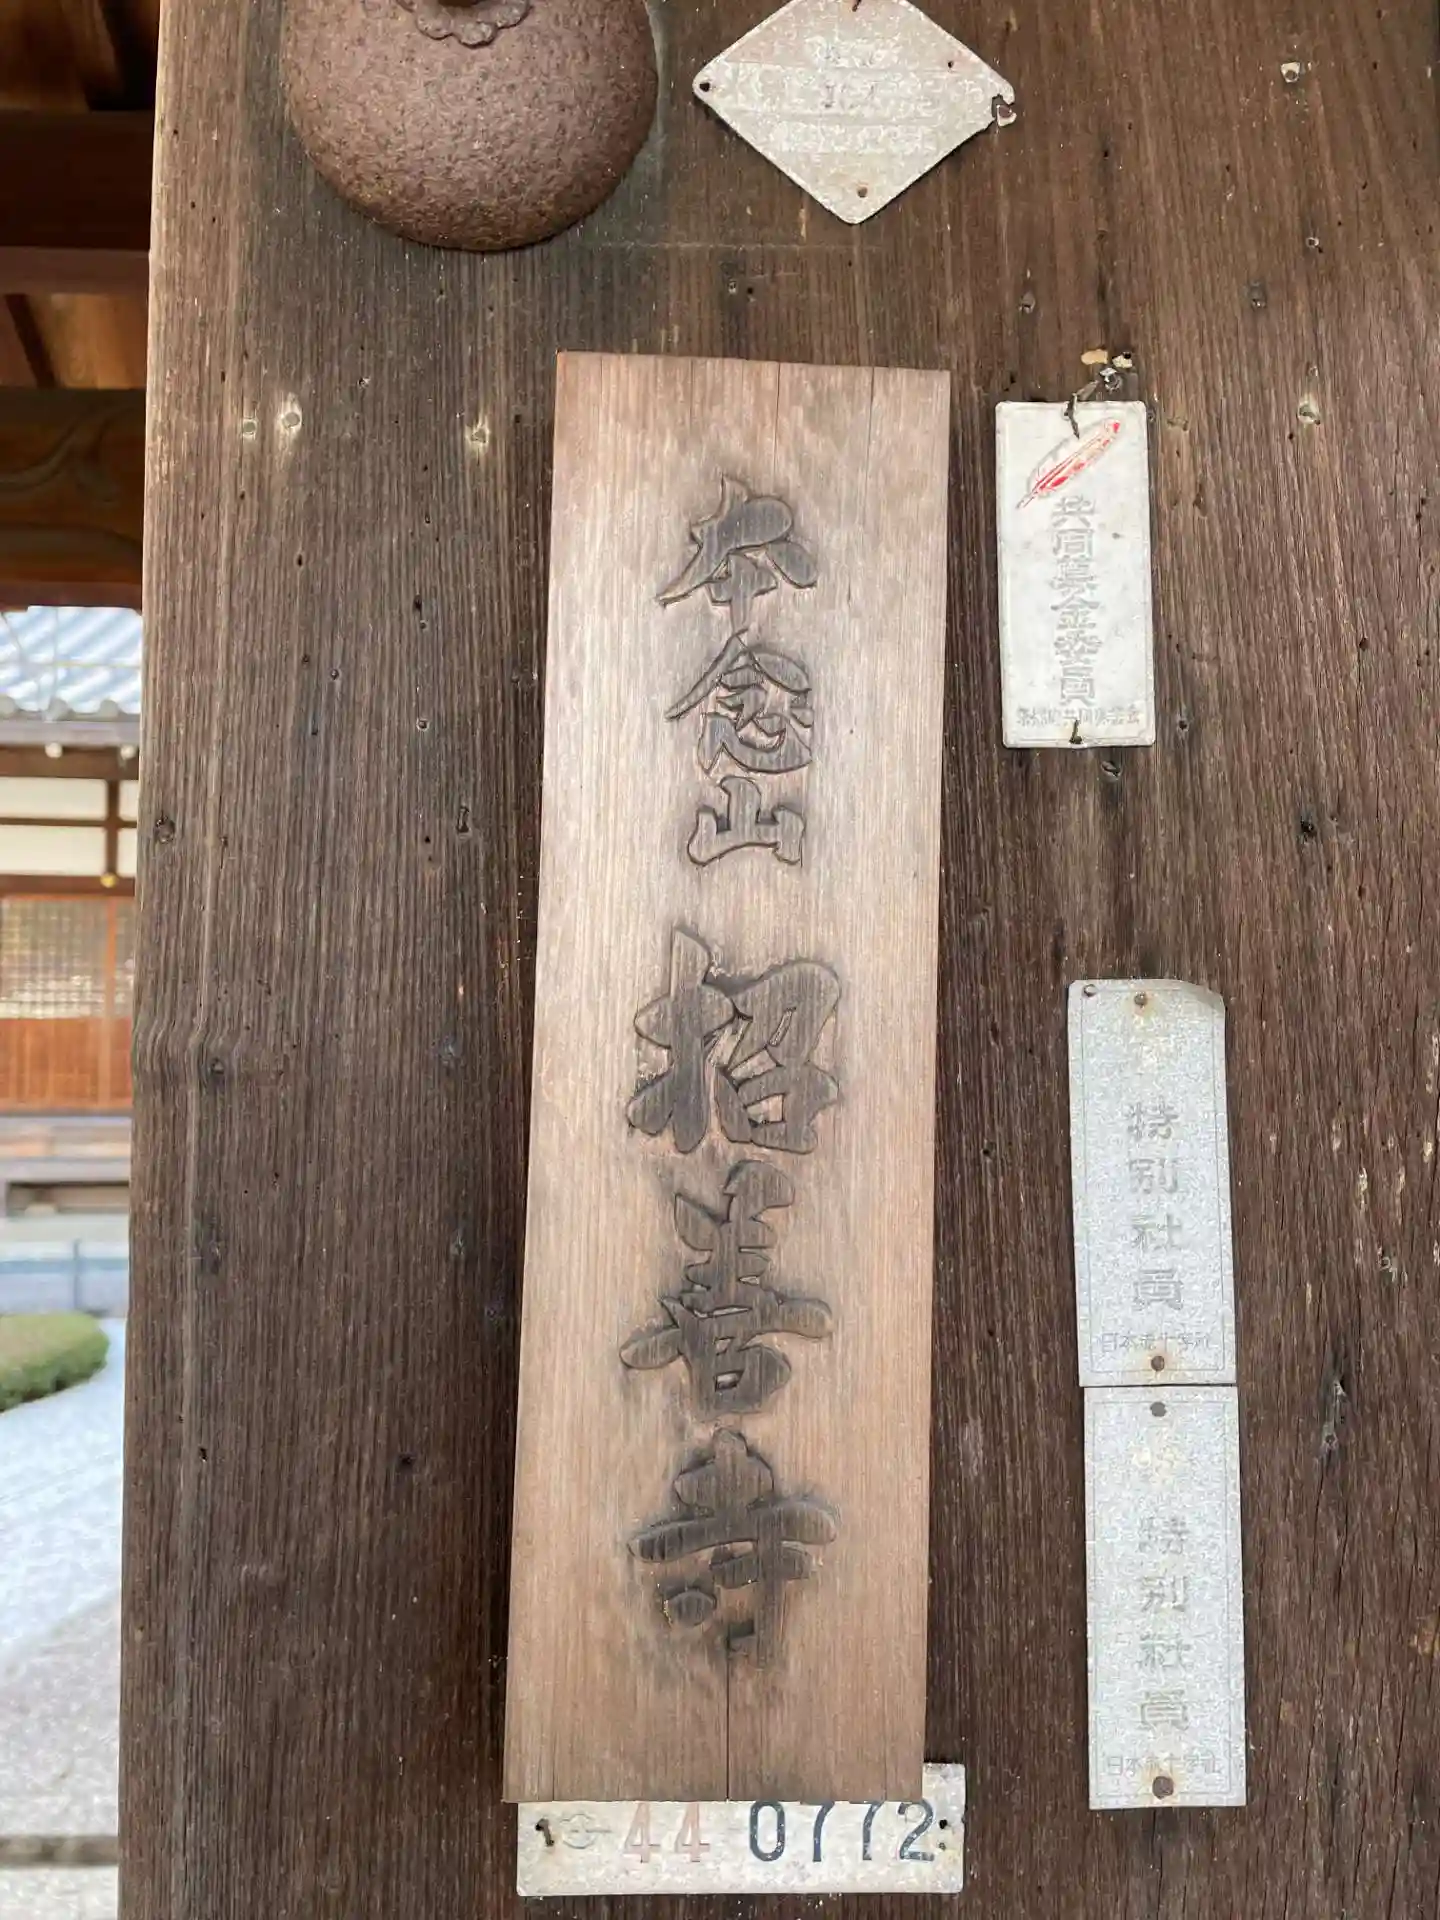 本念山 招善寺
共同募金委員
特別社員
日本赤十字社
特別社員
日本赤十字社
44 0772